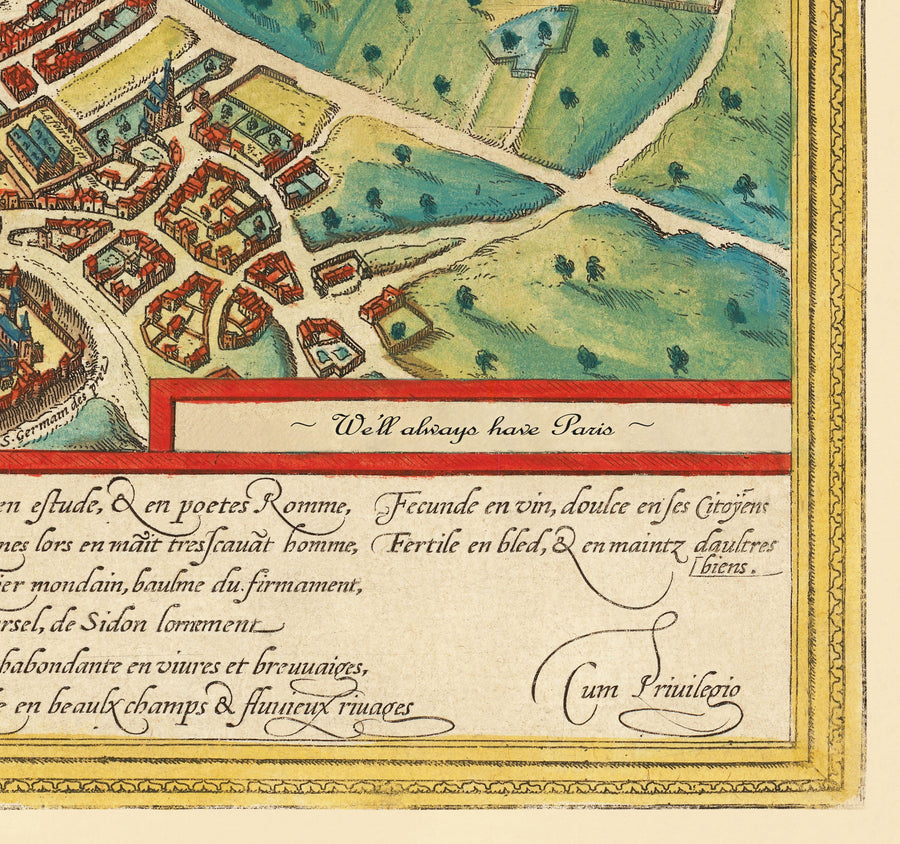 S. Germain des prez
~ We'll always have Paris ~
en eſtude, & en poetes Romme,
nes lors en mãit tresſcauãt homme,
ier mondain, baulme du.firmament,
rsel, de Sidon lornement
habondante en viures et breuuaiges,
e en beaulx champs & fluuieux riuages
Fecunde en vin, doulce en ſes Citoÿens
Fertile en bled, & en maintz daultres
biens.
Cum Priuilegio